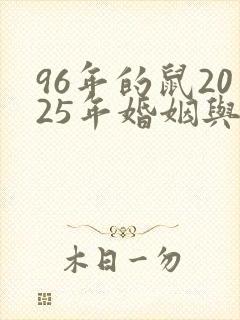 96年的鼠20
25年婚姻與
木日一勿